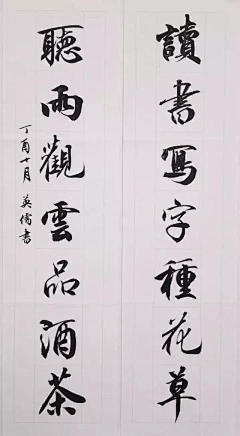 讀書寫字種花草
聽雨觀雲品酒茶
丁酉十月 英僑書